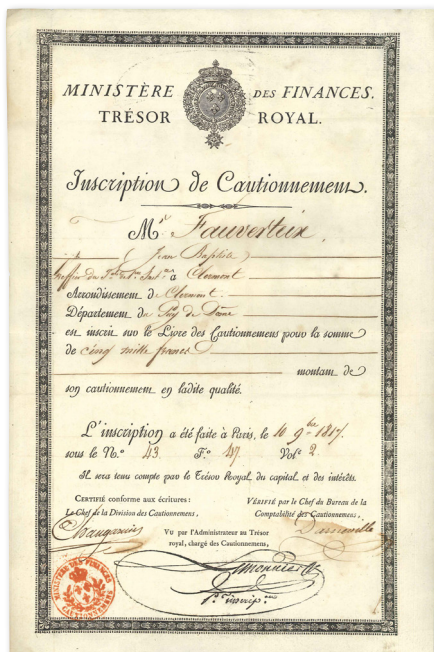 MINISTÈRE DES FINANCES.
TRÉSOR ROYAL.
Inscription de Cautionnement.
Mr. Fauverteix
(Jean Baptiste)
Greffier du à Clermont
Arrondissement de Clermont
Département du Puy de Dome
est inscrit sur le Livre des Cautionnemens pour la somme
de cinq mille francs
montant de
son cautionnement en ladite qualité.
L'inscription a été faite à Paris, le 10 9bre 1817.
sous le N.º 43 F.º 417 Vol.º 2
Il sera tenu compte par le Trésor Royal, du capital et des intérêts.
CERTIFIÉ conforme aux écritures:
Le Chef de la Division des Cautionnemens.
VÉRIFIÉ par le Chef du Bureau de la
Comptabilité des Cautionnemens,
VU par l'Administrateur au Trésor
royal, chargé des Cautionnemens,
MINISTÈRE DES FINANCES
CAUTIONNEMENTS